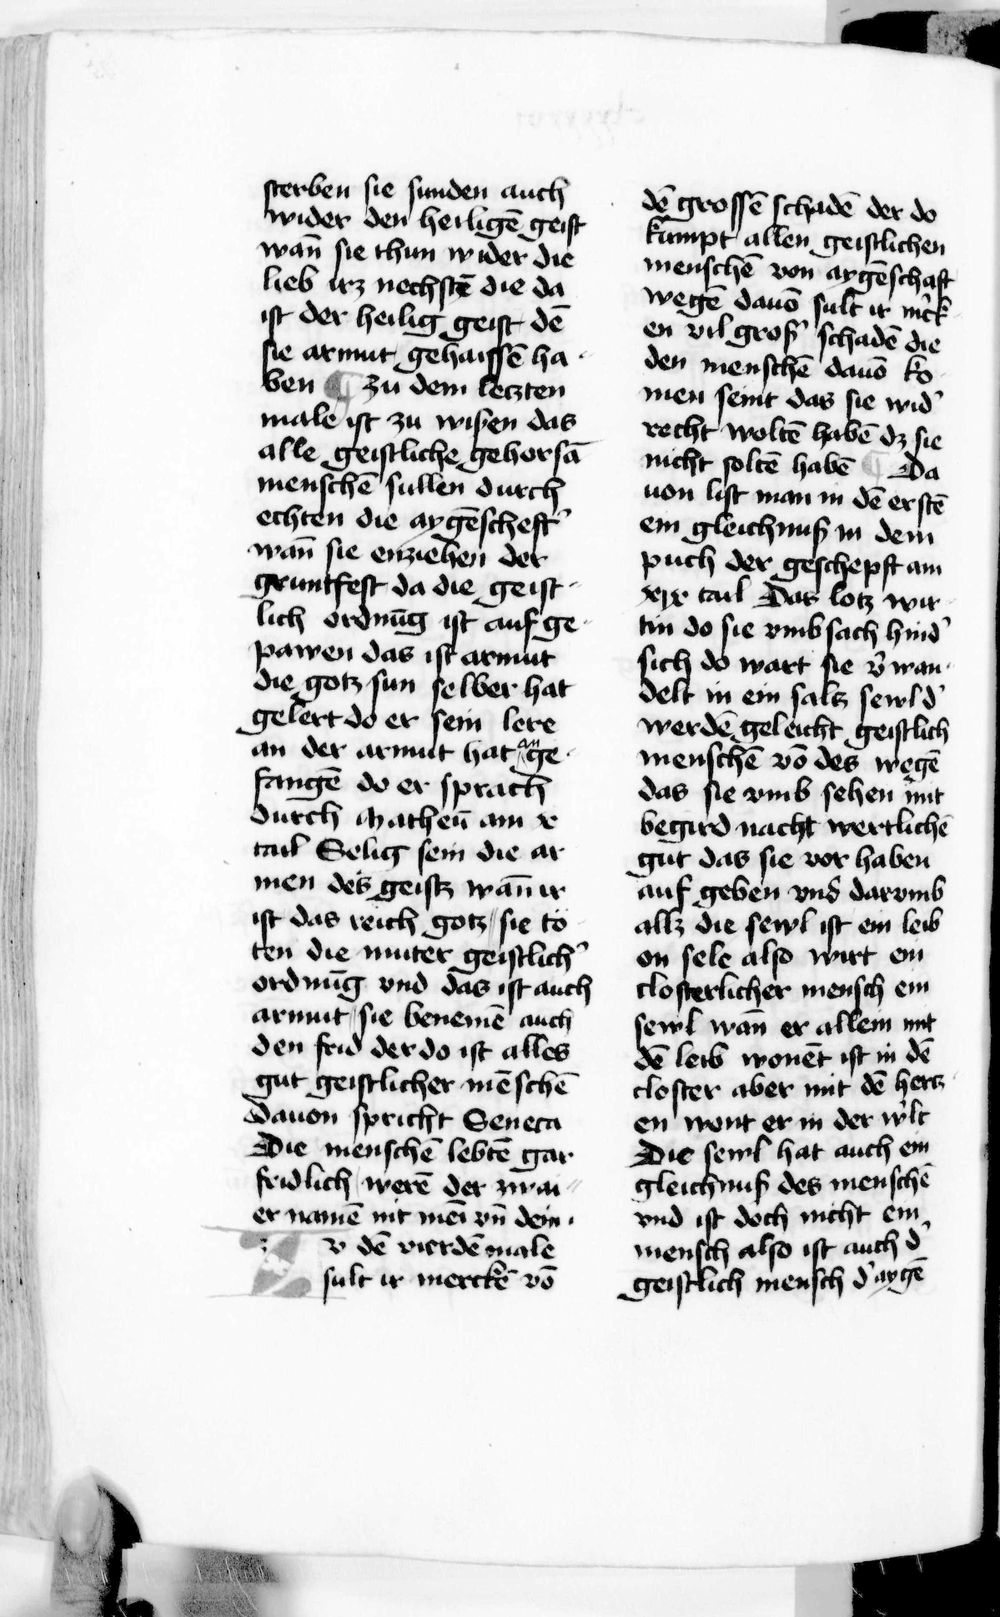 sterben sie sunden auch
wider den heiligē geist
wañ sie thun wider die
lieb irz nechstē die da
ist der heilig geist dē
sie armut gehaissē ha
ben ¶ zu dem letzten
male ist zu wisen das
alle geistliche gehorsā
menschē sullen durch
echten die aygēscheft
wañ sie enziehen der
gruntfest da die geist
lich ordnūg ist auf ge
pawen das ist armut
die gotz sun selber hat
gelert do er sein lere
an der armut hat an ge
fangē do er sprach
durch Matheū am v
tail Selig sein die ar
men des geistz wañ ir
ist das reich gotz sie to
ten die muter geistlich'
ordnūg vnd das ist auch
armut sie benemē auch
den frid der do ist alles
gut geistlicher mēschē
dauon spricht Seneca
Die menschē lebtē gar
fridlich werē der zwai
er namē nit mein vñ dein
v dē vierdē male
sult ir merckē vō
dē grossē schadē der do
kumpt allen geistlichen
menschē von aygēschaft
wegē dauō sult ir m'ck
en vil gros' schadē die
den menschē dauō ko
men seint das sie wid'
recht woltē habē dz sie
nicht soltē habē ¶ Da
uon list man in dē erstē
ein gleichnuß in dem
puch der geschepft am
xix tail Das lotz wir
tin do sie vmb sach hind'
sich do wart sie v'wan
delt in ein saltz sewl d'
werdē geleicht geistlich
menschē vō des wegē
das sie vmb sehen mit
begird nacht wertlichē
gut das sie vor haben
auf geben vnd darvmb
allz die sewl ist ein leib
on sele also wirt ein
closterlicher mensch ein
sewl wañ er allein mit
dē leib wonēt ist in dē
closter aber mit dē hertz
en wont er in der w'lt
Die sewl hat auch ein
gleichnuß des menschē
vnd ist doch nicht ein
mensch also ist auch d'
geistlich mensch d' aygē